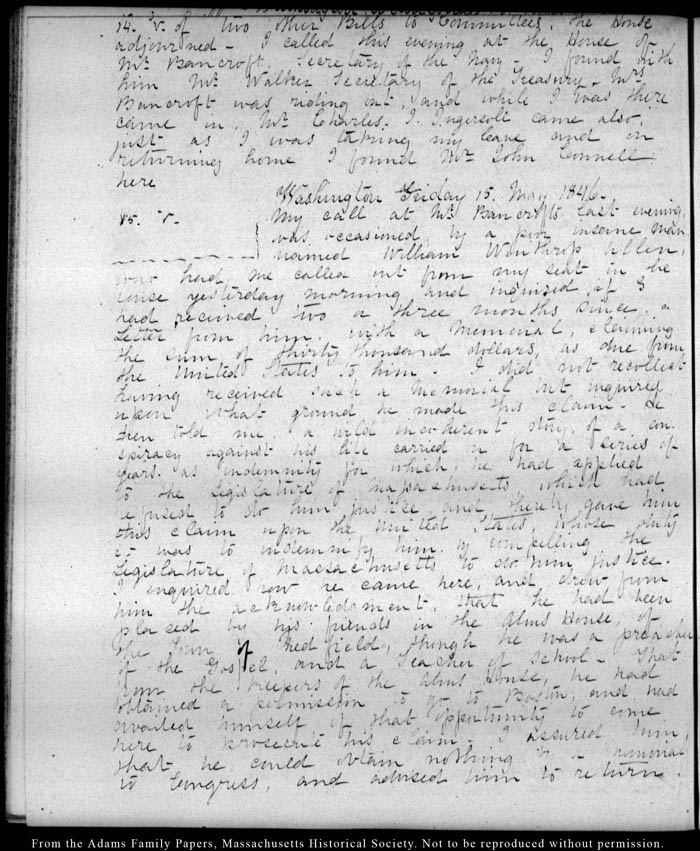 14. V. of two other Bills to Committees, the House
adjourned – I called this evening at the House of
Mr Bancroft, Secretary of the Navy – I found with
him Mr Walker Secretary of the Treasury – Mrs
Bancroft was riding out, and while I was there
came in, Mr Charles. J. Ingersoll came also,
just as I was taking my leave and on
returning home I found Mr John Connell
here
Washington Friday 15. May 1846.
15. V. My call at Mr Bancroft's last evening,
was occasioned, by a poor insane man
named William Winthrop Allen,
who had me called out from my seat in the
House yesterday morning and inquired if I
had received two or three months since a
Letter from him, with a Memorial, claiming
the sum of thirty thousand dollars, as due from
the United States to him – I did not recollect
having received such a Memorial but inquired
upon what ground he made this claim – He
then told me a wild incoherent story, of a con
spiracy against his life carried on for a series of
years. as indemnity for which, he had applied
to the Legislature of Massachusetts which had
refused to do him justice, and thereby gave him
this claim upon the United States, whose duty
it was to indemnify him by compelling the
Legislature of Massachusetts to do him justice.
I enquired how he came here, and drew from
him the acknowledgment, that he had been
placed by his friends in the Alms House, of
the Town of Medfield, though he was a preacher
of the Gospel, and a Teacher of School – That
from the keepers of the Alms House, he had
obtained a permission to go to Boston, and had
availed himself of that opportunity to come
here to prosecute his claim – I assured him,
that he could obtain nothing by
to Congress, and advised him to return.
From the Adams Family Papers, Massachusetts Historical Society. Not to be reproduced without permission.